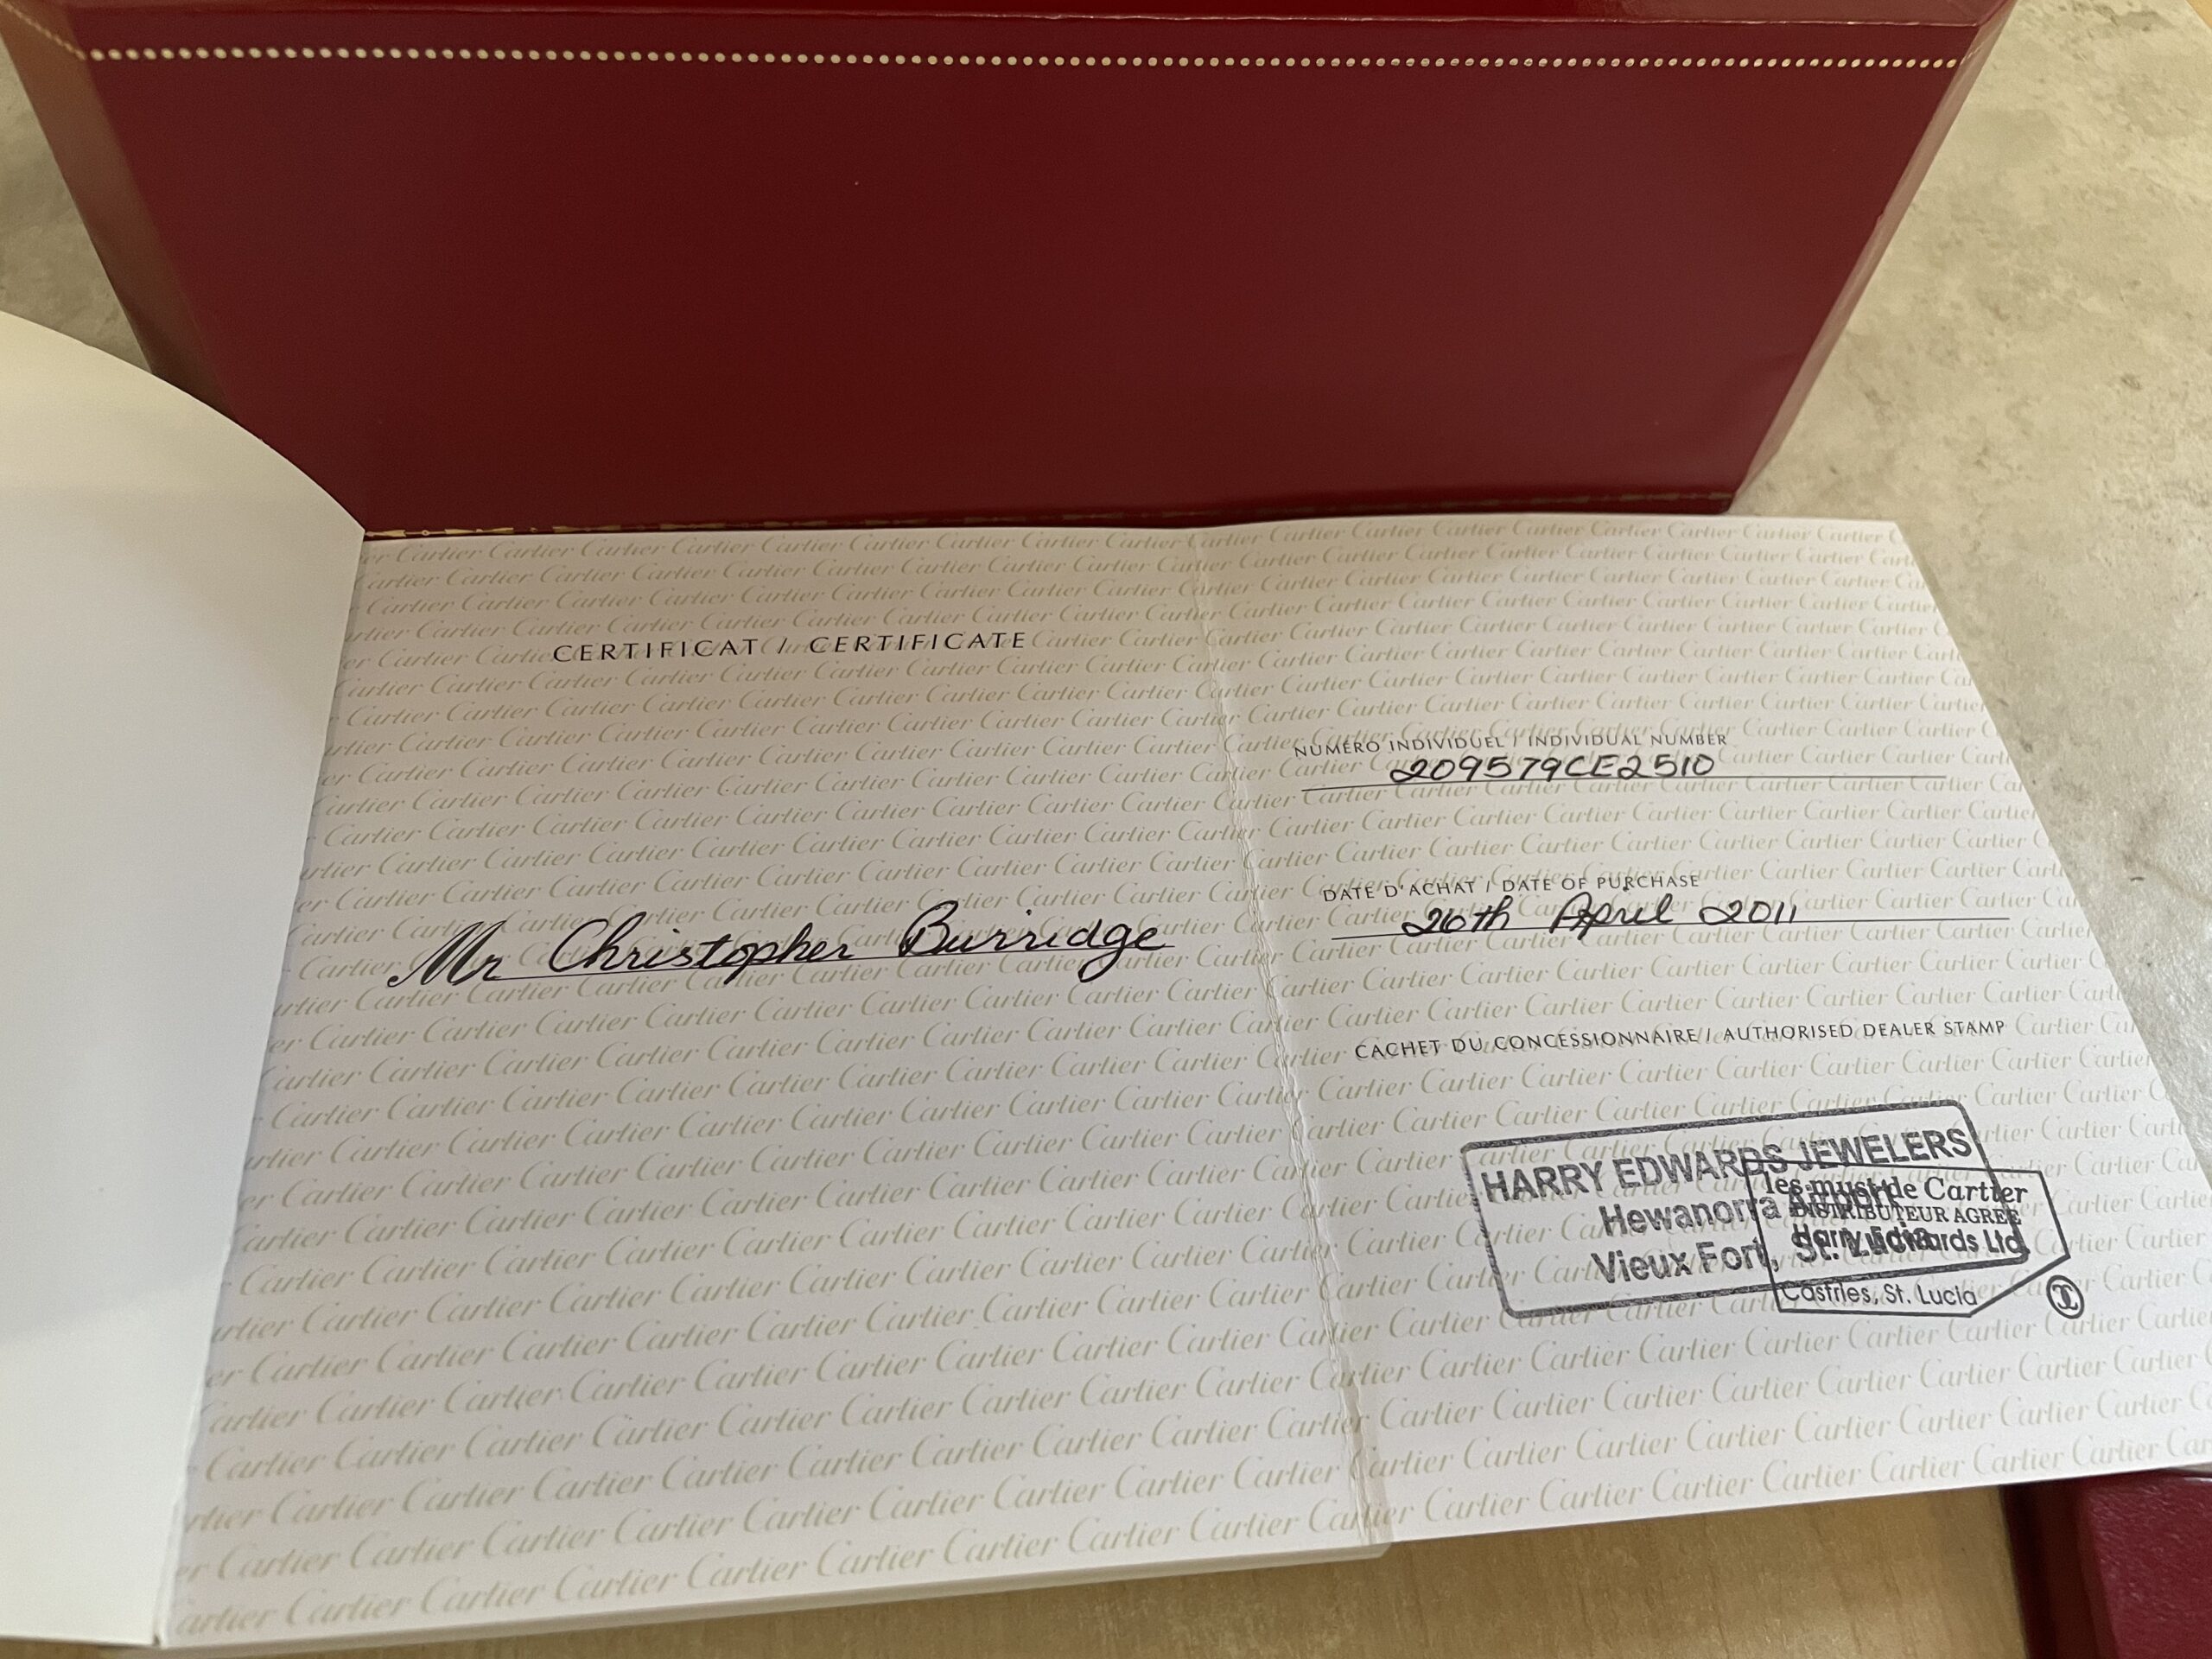 CERTIFICAT / CERTIFICATE
Mr Christopher Burridge
NUMÉRO INDIVIDUEL / INDIVIDUAL NUMBER
209579CE2510
DATE D'ACHAT / DATE OF PURCHASE
26th April 2011
CACHET DU CONCESSIONNAIRE / AUTHORISED DEALER STAMP
HARRY EDWARDS JEWELERS
Hewanorra Airport
Vieux Fort, St. Lucia
les must de Cartier
DISTRIBUTEUR AGREE
Harry Edwards Ltd.
Castries, St. Lucia